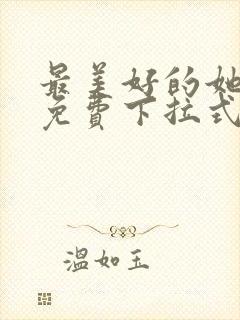 最美好的她
免費下拉式
溫如玉